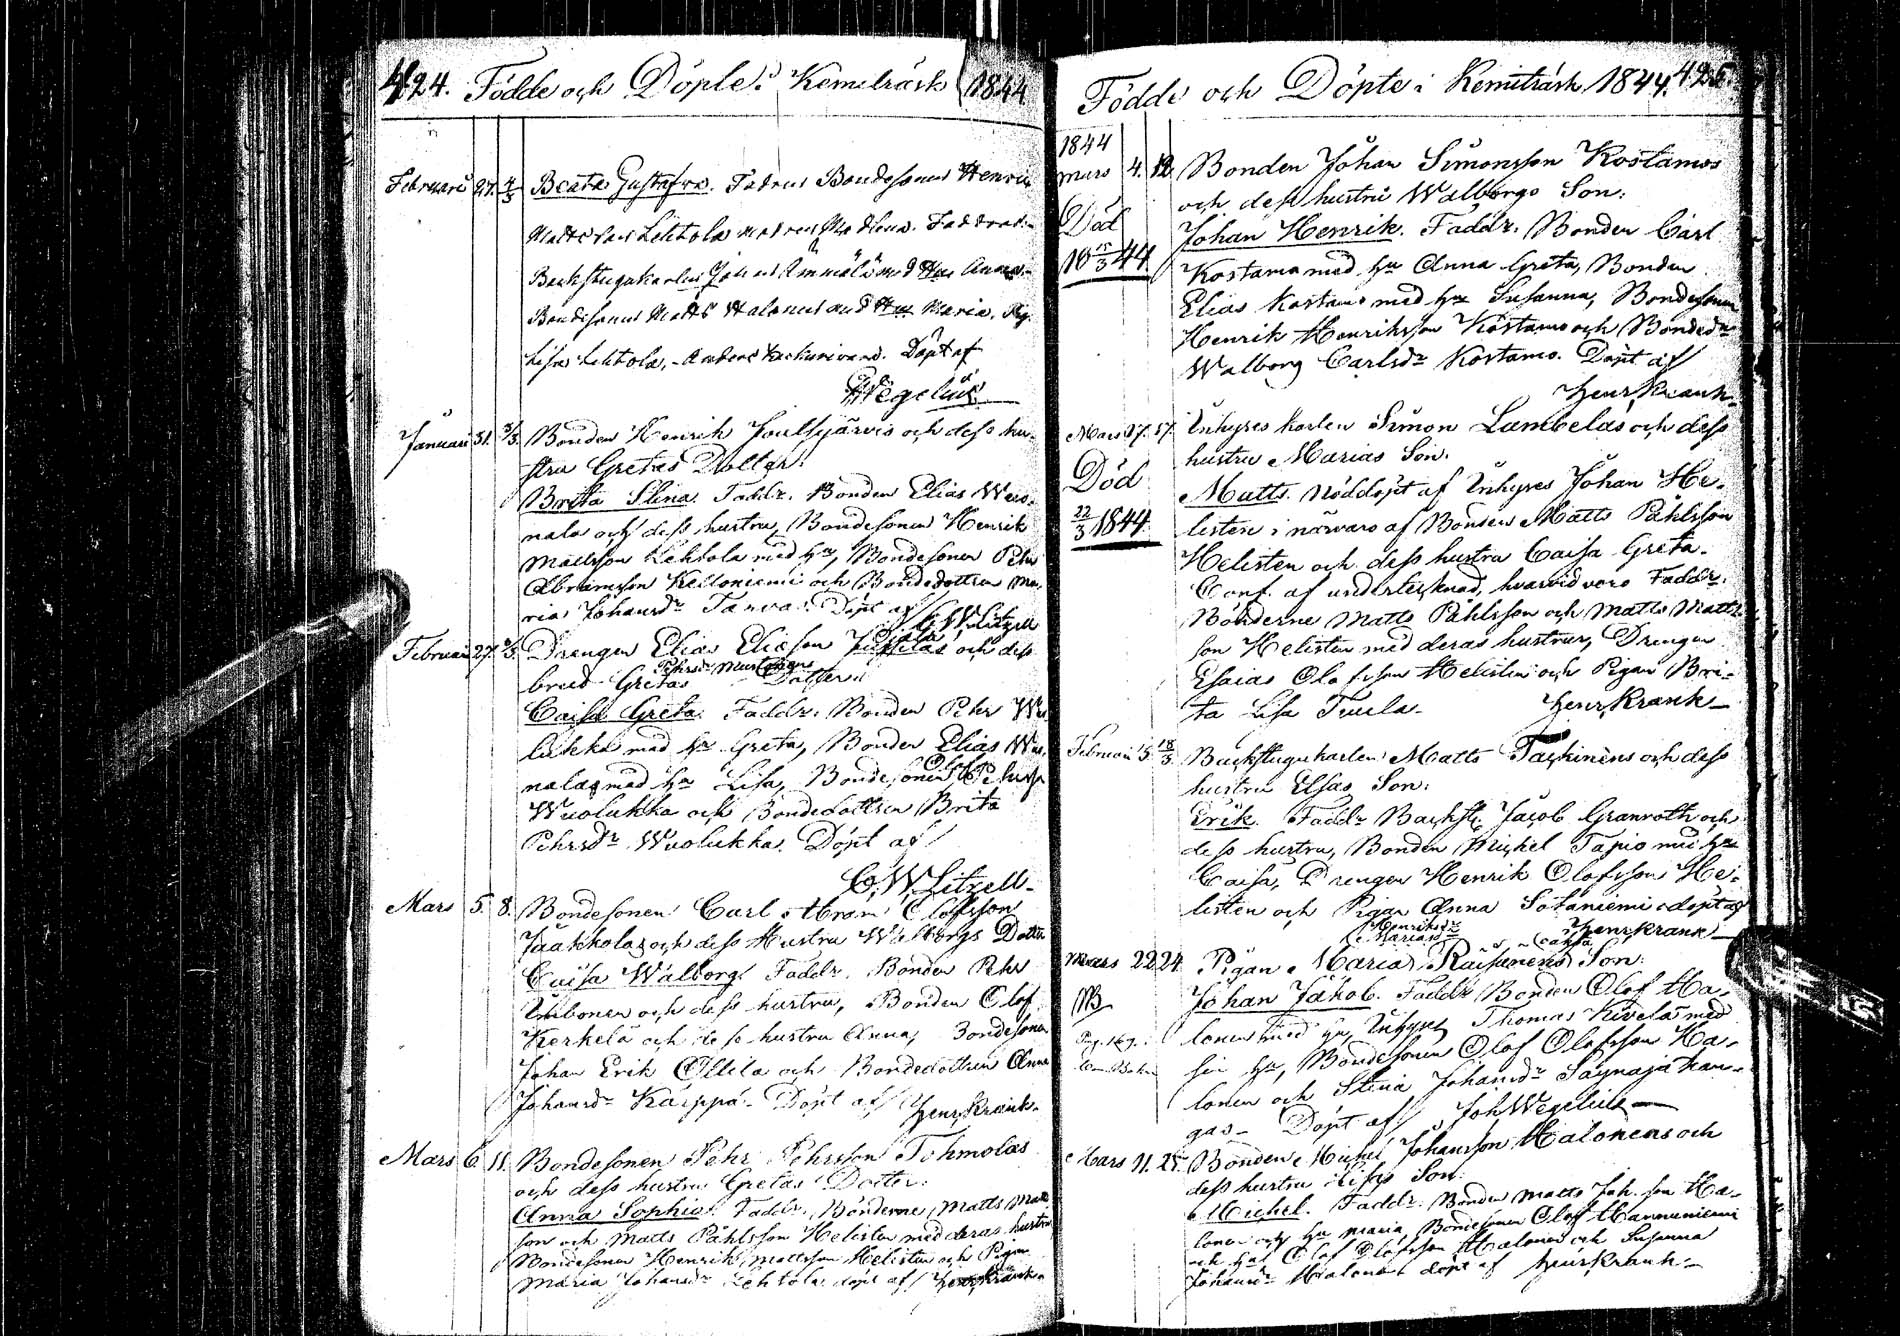 424. Födde och Döpte i Kemiträsk 1844
Februari 27. 4/3 Beata Gustafva. Fadren Bondesonen Henric
Mattsson Lehtola modren Madlena. Faddrar:
Backstugukarlen Johan med Hus Anna
Bondesonen Matts Halonen med Hus Maria, Pig.
Lisa Lehtola, Anders Döpt af
Wegelius
Januari 31. 3/3. Bonden Henrik Joutsijärvis och dess hu-
stru Gretas Dotter:
Brita Stina. Faddr. Bonden Elias
nala och dess hustru, Bondesonen Henrik
Mattsson Lehtola med hu, Bondesonen Pehr
Abramsson Kelloniemi och Bondedottren Ma-
ria Johansdr Tarva. Döpt af
C. W. Litzell
Februari 27. 3/3. Drengen Elias Eliasson och dess
Pehrsdr
brud Gretas Dotter:
Caisa Greta. Faddr. Bonden Pehr Wuo-
lukka med hu Greta, Bonden Elias
nala med hu Lisa, Bondesonen Pehrss
Wuolukka och Bondedottren Brita
Pehrsdr Wuolukka. Döpt af
C. W. Litzell
Mars 5. 8. Bondesonen Carl Abram Olofsson
Jaakkolas och dess Hustru Walborgs Dotter
Caisa Walborg. Faddr. Bonden Pehr
och dess hustru, Bonden Olof
Kerkelä och dess hustru Anna, Bondesonen
Johan Erik Ollila och Bondedottren Anna
Johansdr Karppa. Döpt af Henr. Krank.
Mars 6. 11. Bondesonen Pehr Pehrsson Tohmolas
och dess hustru Gretas Dotter:
Anna Sophia. Faddr. Bönderne Matts Matts
son och Matts Påhlsson Helisten med deras hustrur
Bondesonen Henrik Mattsson Helisten och Pigan
Maria Johansdr Lehtola döpt af Henr. Krank
Födde och Döpte i Kemiträsk 1844. 425.
1844
Mars 4. 12. Bonden Johan Simonsson Kostamos
och dess hustru Walborgs Son:
Död
Johan Henrik. Faddr. Bonden Carl
18 15/3 44
Kostamo med hu Anna Greta, Bonden
Elias Kostamo med hu Susanna, Bondesonen
Henrik Henriksson Kostamo och Bondedr
Walborg Carlsdr Kostamo. Döpt af
Henr. Krank.
Mars 17. 17. Inhyses karlen Simon Lambelas och dess
hustru Marias Son:
Död
Matts. Nöddöpt af Inhyses Johan He-
22/3 1844.
listen i närvaro af Bonden Matts Påhlsson
Helisten och dess hustru Caisa Greta.
Conf. af undertecknad, hvarvid voro Faddr.
Bönderne Matts Påhlsson och Matts Matts
son Helisten med deras hustrur, Drengen
Esaias Olofsson Helisten och Pigan Bri-
ta Lisa Tuula. Henr. Krank
Februari 5. 18/3. Backstugukarlen Matts Tackinens och dess
hustru Elsas Son:
Erik. Faddr Backst. Jacob Granroth och
dess hustru, Bonden Michel Tapio med hu
Caisa, Drengen Henrik Olofsson He-
listen och Pigan Anna Sotaniemi döpt af
Henr. Krank
Henriksdr
Mars 22. 24. Pigan Maria Räisänens Son:
NB
Johan Jakob. Faddr Bonden Olof Ha-
lonen med hu, Inhyses Thomas Kivelä med
sin hu, Bondesonen Olof Olofsson Ha-
lonen och Stina Johansdr Saynajakan-
gas. Döpt af Joh Wegelius
Mars 11. 25. Bonden Michel Johansson Halonens och
dess hustru Lisas Son:
Michel. Faddr. Bonden Matts Joh. son Ha-
lonen och hu Maria, Bondesonen Olof Hannuniemi
och hu, Olof Olofsson Halonen och Susanna
Johansdr Halonen döpt af Henr. Krank.